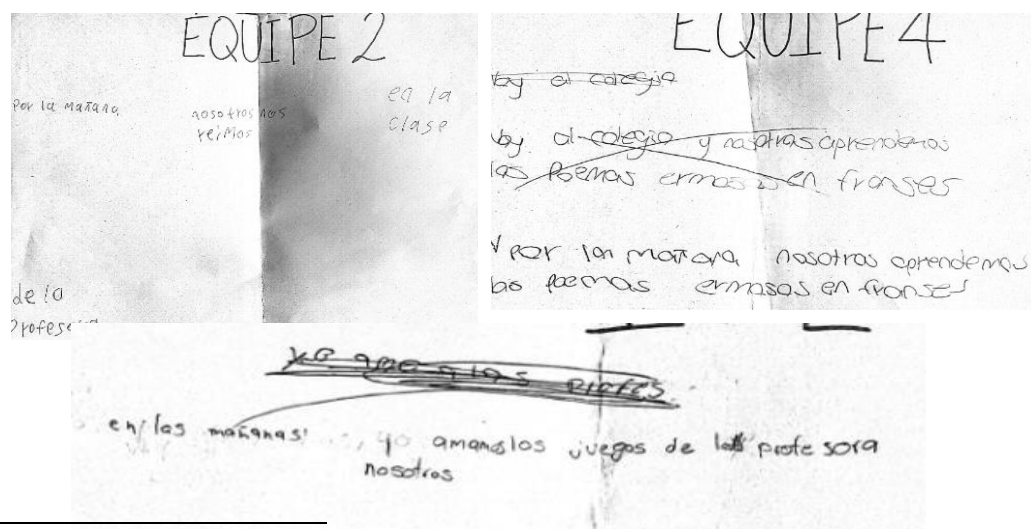 EQUIPE 2
Por la mañana nosotros nos en la
reimos clase
de la
profesora
EQUIPE 4
Voy al colegio
Voy al colegio y nosotras aprendemos
las Poemas ermosos en franses
Y por lan mañana nosotras aprendemos
las Poemas ermosos en franses
en las mañanas yo amamos los juegos de las profesora
nosotros